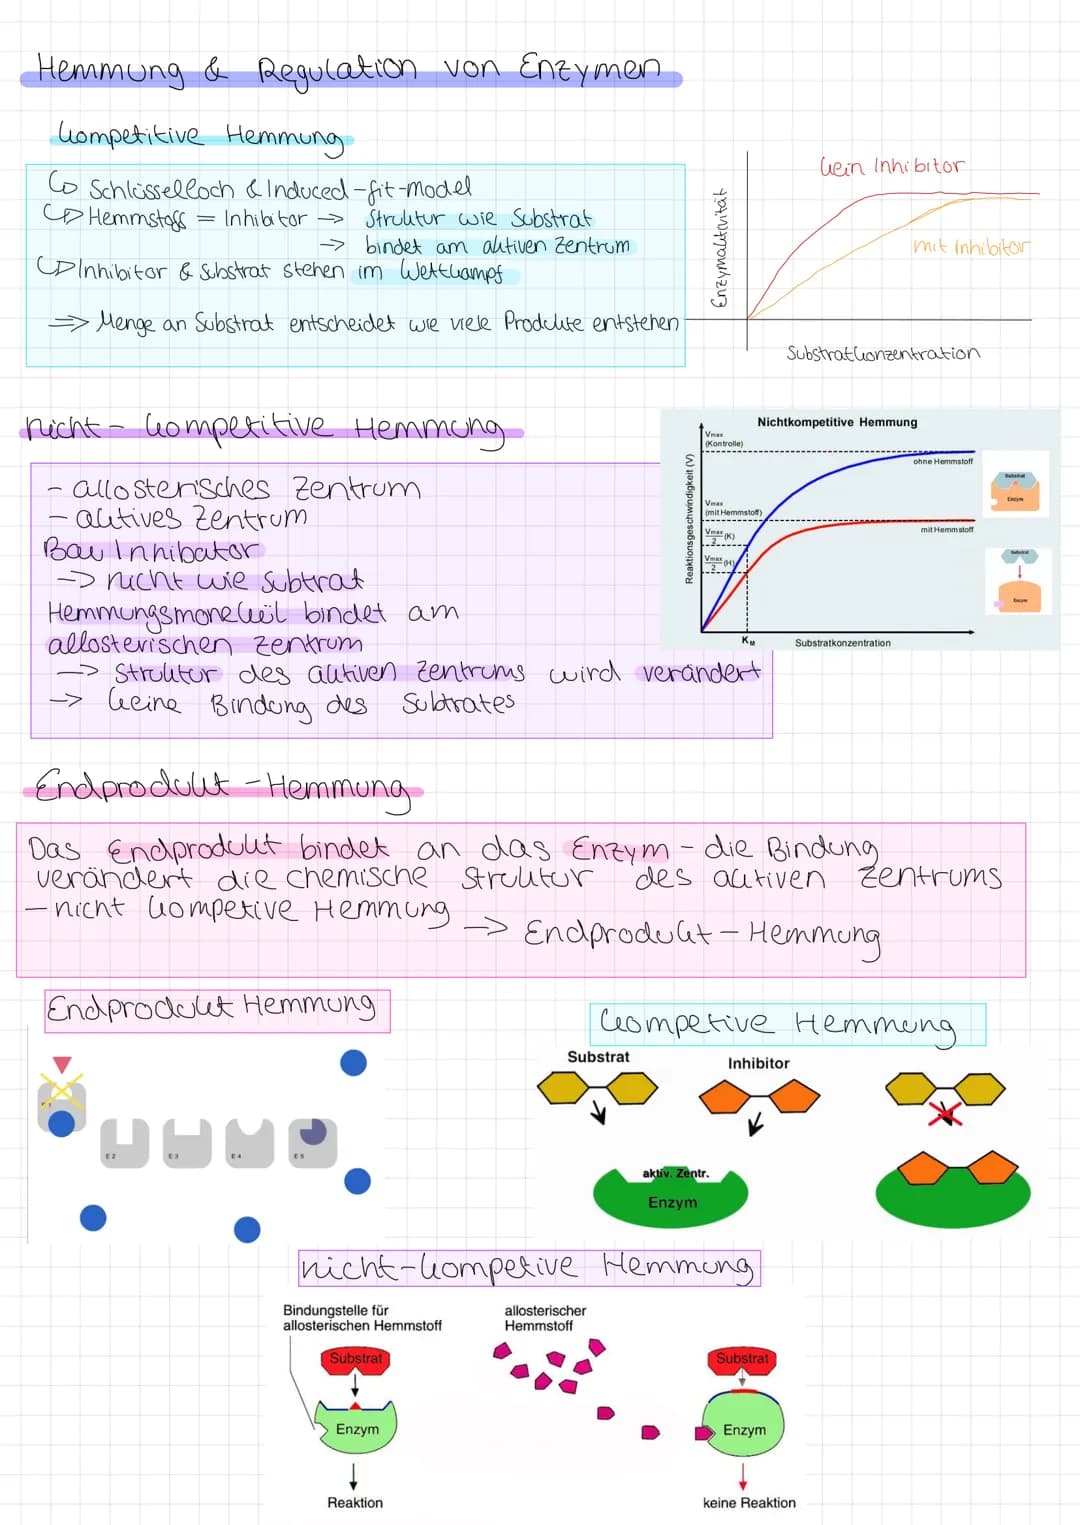 Hemmung & Regulation von Enzymen
kompetitive Hemmung
Schlüsselloch & Induced-fit-model
Hemmstoff = Inhibitor → Struktur wie Substrat
→ bindet am aktiven Zentrum
Inhibitor & Substrat stehen im Wettkampf
⇒ Menge an Substrat entscheidet wie viele Produkte entstehen
Enzymaktivität
kein Inhibitor
mit Inhibitor
Substratkonzentration
nicht-kompetitive Hemmung
- allosterisches Zentrum
- aktives Zentrum
Bau Innibator
→ nicht wie Subtrat
Hemmungsmonekül bindet am
allosterischen Zentrum
→ Struktur des aktiven Zentrums wird verändert
→ keine Bindung des Subtrates
Nichtkompetitive Hemmung
Reaktionsgeschwindigkeit (V)
Vmax
(Kontrolle)
ohne Hemmstoff
Vmax
(mit Hemmstoff)
mit Hemmstoff
Vmax/2 (K)
Vmax/2 (H)
KM
Substratkonzentration
Substrat
Enzym
Substrat
Enzym
Endprodukt-Hemmung
Das Endprodukt bindet an das Enzym - die Bindung
verändert die chemische Struktur des aktiven Zentrums
- nicht kompetive Hemmung
→ Endprodukt-Hemmung
Endprodukt Hemmung
E2
E3
E4
E5
kompetive Hemmung
Substrat
Inhibitor
aktiv. Zentr.
Enzym
nicht-kompetive Hemmung
Bindungstelle für
allosterischen Hemmstoff
allosterischer
Hemmstoff
Substrat
Enzym
Reaktion
Substrat
Enzym
keine Reaktion